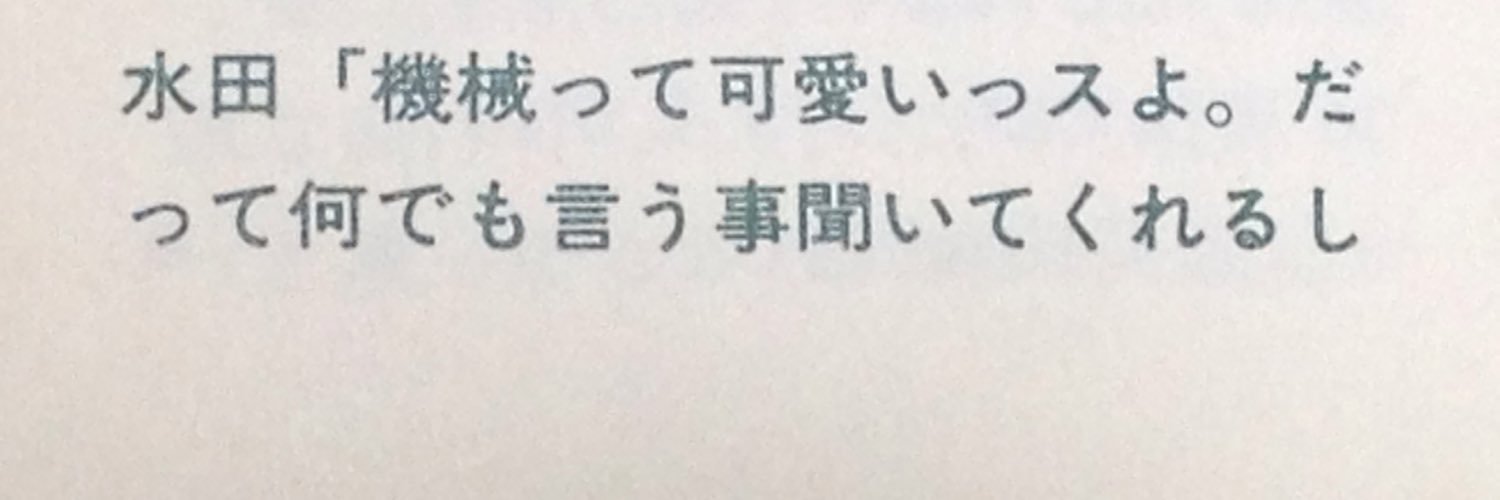 水田「機械って可愛いっスよ。だ
って何でも言う事聞いてくれるし